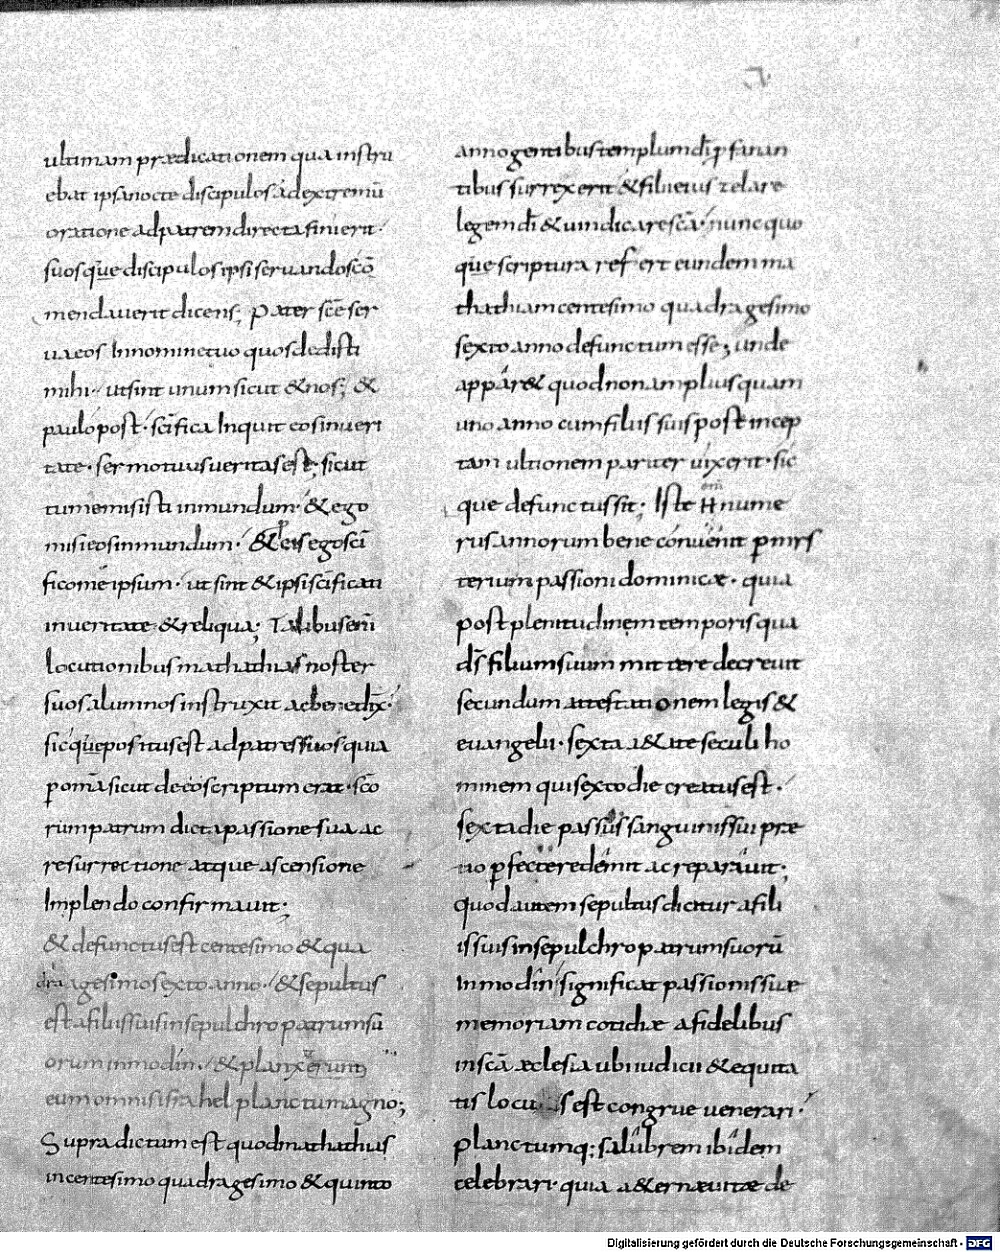 ultimam prædicationem qua instru
ebat ipsa nocte discipulos ad extremū
oratione ad patrem directa finierit·
suosque discipulos ipsi servandos cō
mendaverit dicens; Pater sc̄e ser
va eos In nomine tuo quos dedisti
mihi· ut sint unum sicut & nos; &
paulo post· sc̄ifica Inquit eos in veri
tate· sermo tuus veritas est; sicut
tu me misisti in mundum· & ego
misi eos in mundum· & p eis ego sc̄i
fico me ipsum· ut sint & ipsi sc̄ificati
in veritate & reliqua; Talibus eni
locutionibus mathathias noster
suos alumnos instruxit ac benedix̄·
sicque positus est ad patres suos quia
p omā sicut de eo scriptum erat· sc̄o
rum patrum dicta passione sua ac
resurrectione atque ascensione
Implendo confirmavit;
& defunctus est centesimo & qua
dragesimo sexto anno· & sepultus
est a filiis suis in sepulchro patrum su
orum in modin· & planxerunt
eum omnis israhel planctu magno;
Supra dictum est quod mathathias
in centesimo quadragesimo & quinto
anno gentibus templum dī p̄fanan
tibus surrexerit & filii eius zelare
legem dī & vindicare sc̄ā· nunc quo
que scriptura refert eundem ma
thathiam centesimo quadragesimo
sexto anno defunctum esse; unde
appar& quod non amplius quam
uno anno cum filiis suis post incep
tam ultionem pariter vixerit· sic
que defunctus sit; Iste enī nume
rus annorum bene convenit p mys
terium passioni dominicæ· quia
post plenitudinem temporis qua
d̄s filium suum mittere decrevit
secundum attestationem legis &
evangelii· sexta a&ate seculi ho
minem qui sexto die creatus est·
sexta die passus sanguinis sui præ
tio pfecte redemit ac reparavit;
quod autem sepultus dicitur a fili
is suis in sepulchro patrum suorū
In modin significat passionis suæ
memoriam cotidiæ a fidelibus
in sc̄ā æclesia ubi iudicii & equita
tis locus est congrue venerari·
planctumq; salubrem ibidem
celebrari· quia a&ernæ vitæ de
Digitalisierung gefördert durch die Deutsche Forschungsgemeinschaft - DFG